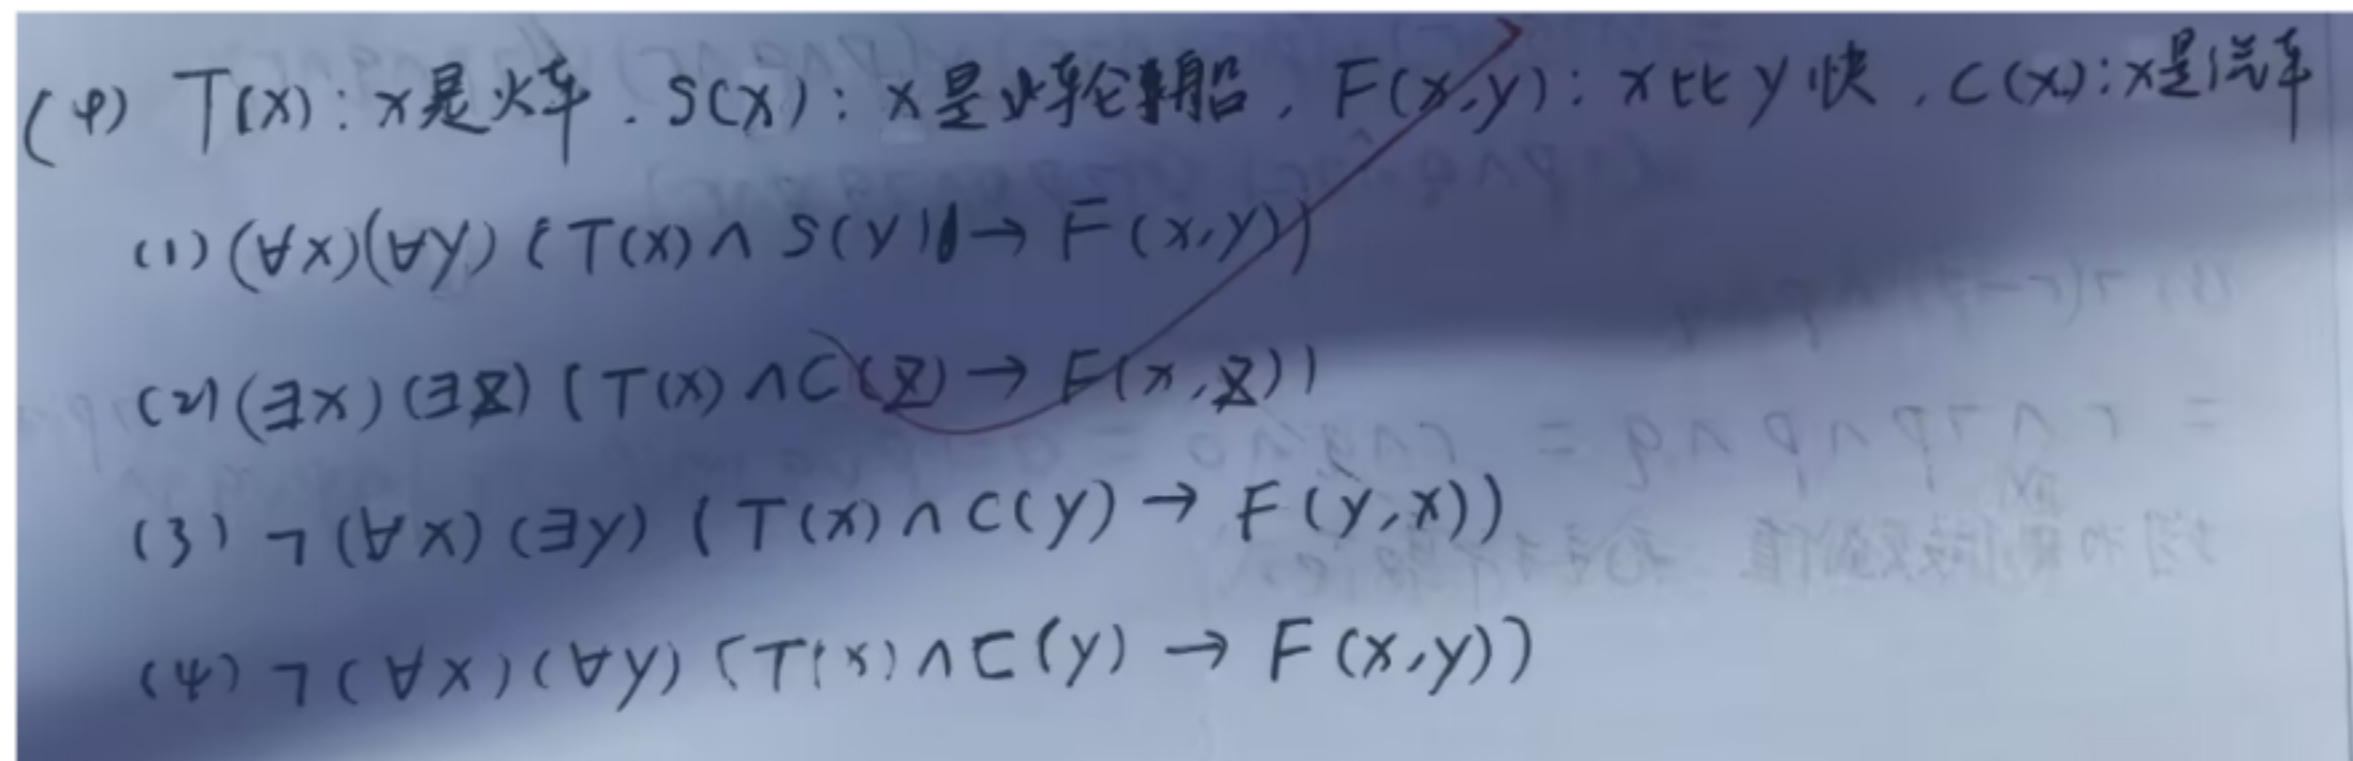 (4) T(x): x是火车. S(x): x是轮船, F(x,y): x比y快, C(x): x是汽车
(1) (∀x)(∀y) (T(x) ∧ S(y) → F(x,y))
(2) (∃x) (∃z) (T(x) ∧ C(z) → F(x,z))
(3) ¬(∀x) (∃y) (T(x) ∧ C(y) → F(y,x))
(4) ¬(∀x)(∀y) (T(x) ∧ C(y) → F(x,y))